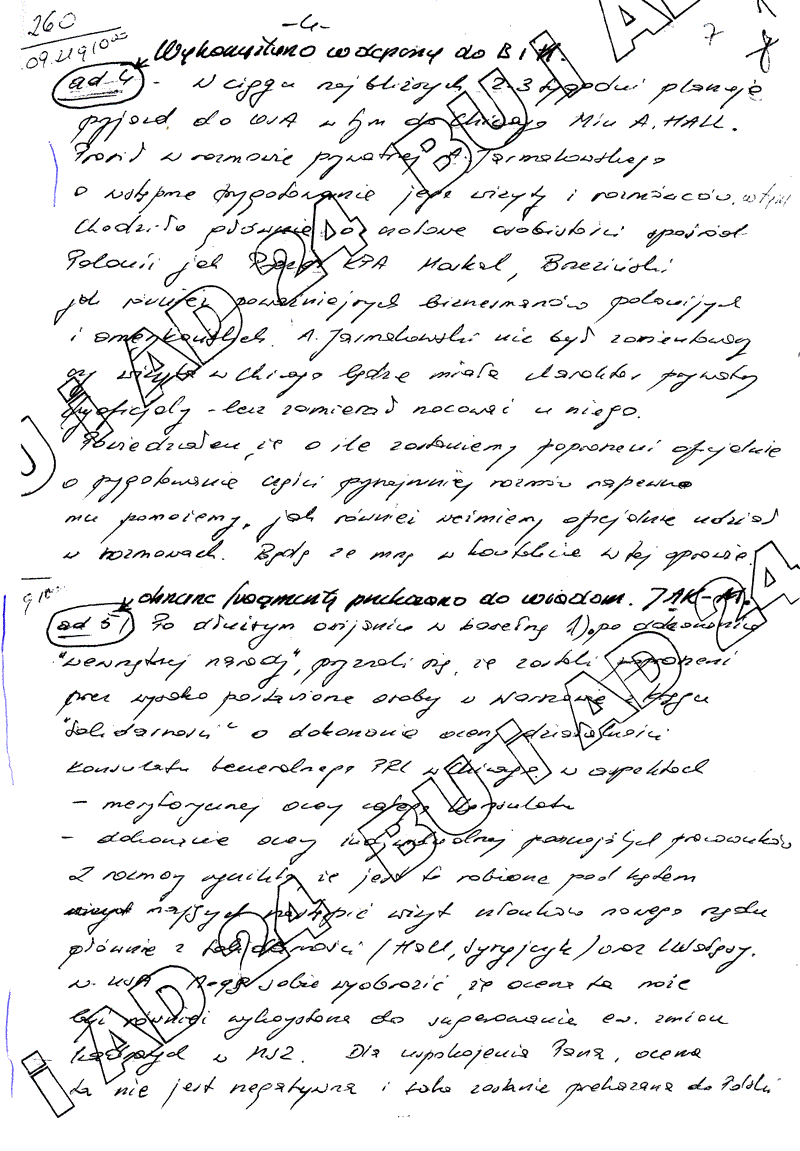 260
09.21 9 10 00
- 4 -
7
8
Wykorzystano w depeszy do B i H.
ad 4 - W ciągu najbliższych 2-3 tygodni planuje
przyjazd do USA w tym do Chicago Min A. HALL.
Prosił w rozmowie prywatnej A. Jarmakowskiego
o wstępne przygotowanie jego wizyty i rozmówców, w tym
Chodziło głównie o osobistości spośród
Polonii jak Prezes KPA Moskal, Brzeziński
jak również poważniejszych biznesmanów polonijnych
i amerykańskich. A. Jarmakowski nie był zorientowany
czy wizyta w Chicago będzie miała charakter prywatny
czy oficjalny - lecz zamierzał nocować u niego.
Powiedziałem, że o ile zostaniemy poproszeni oficjalnie
o przygotowanie części przynajmniej rozmów napewno
mu pomożemy, jak również weźmiemy oficjalnie udział
w rozmowach. Będą ze mną w kontakcie w tej sprawie.
9 10
fragmenty przekazano do wiadom. JAK-M.
ad 5/ Po dłuższym owijaniu w bawełnę 1). po dokonaniu
"wewnętrznej narady", przyznali się, że zostali poproszeni
przez wysoko postawione osoby w Warszawie z kręgu
"Solidarności" o dokonanie oceny działalności
Konsulatu Generalnego PRL w Chicago w aspektach
- merytorycznej oceny całego Konsulatu
- dokonanie oceny indywidualnej poszczególnych pracowników
Z rozmowy wynikło, że jest to robione pod kątem
mających nastąpić wizyt członków nowego rządu
głównie z Solidarności / Hall, Syryjczyk / oraz Wałęsy.
w USA sobie wyobrazić, że ocena ta może
być również wykorzystana do sugerowania ew. zmian
kadrowych w MSZ. Dla uspokojenia Pana, ocena
ta nie jest negatywna i taka zostanie przekazana do Polski
BU i AD 24 BU i AD 24
BU i AD 24 BU i AD 24